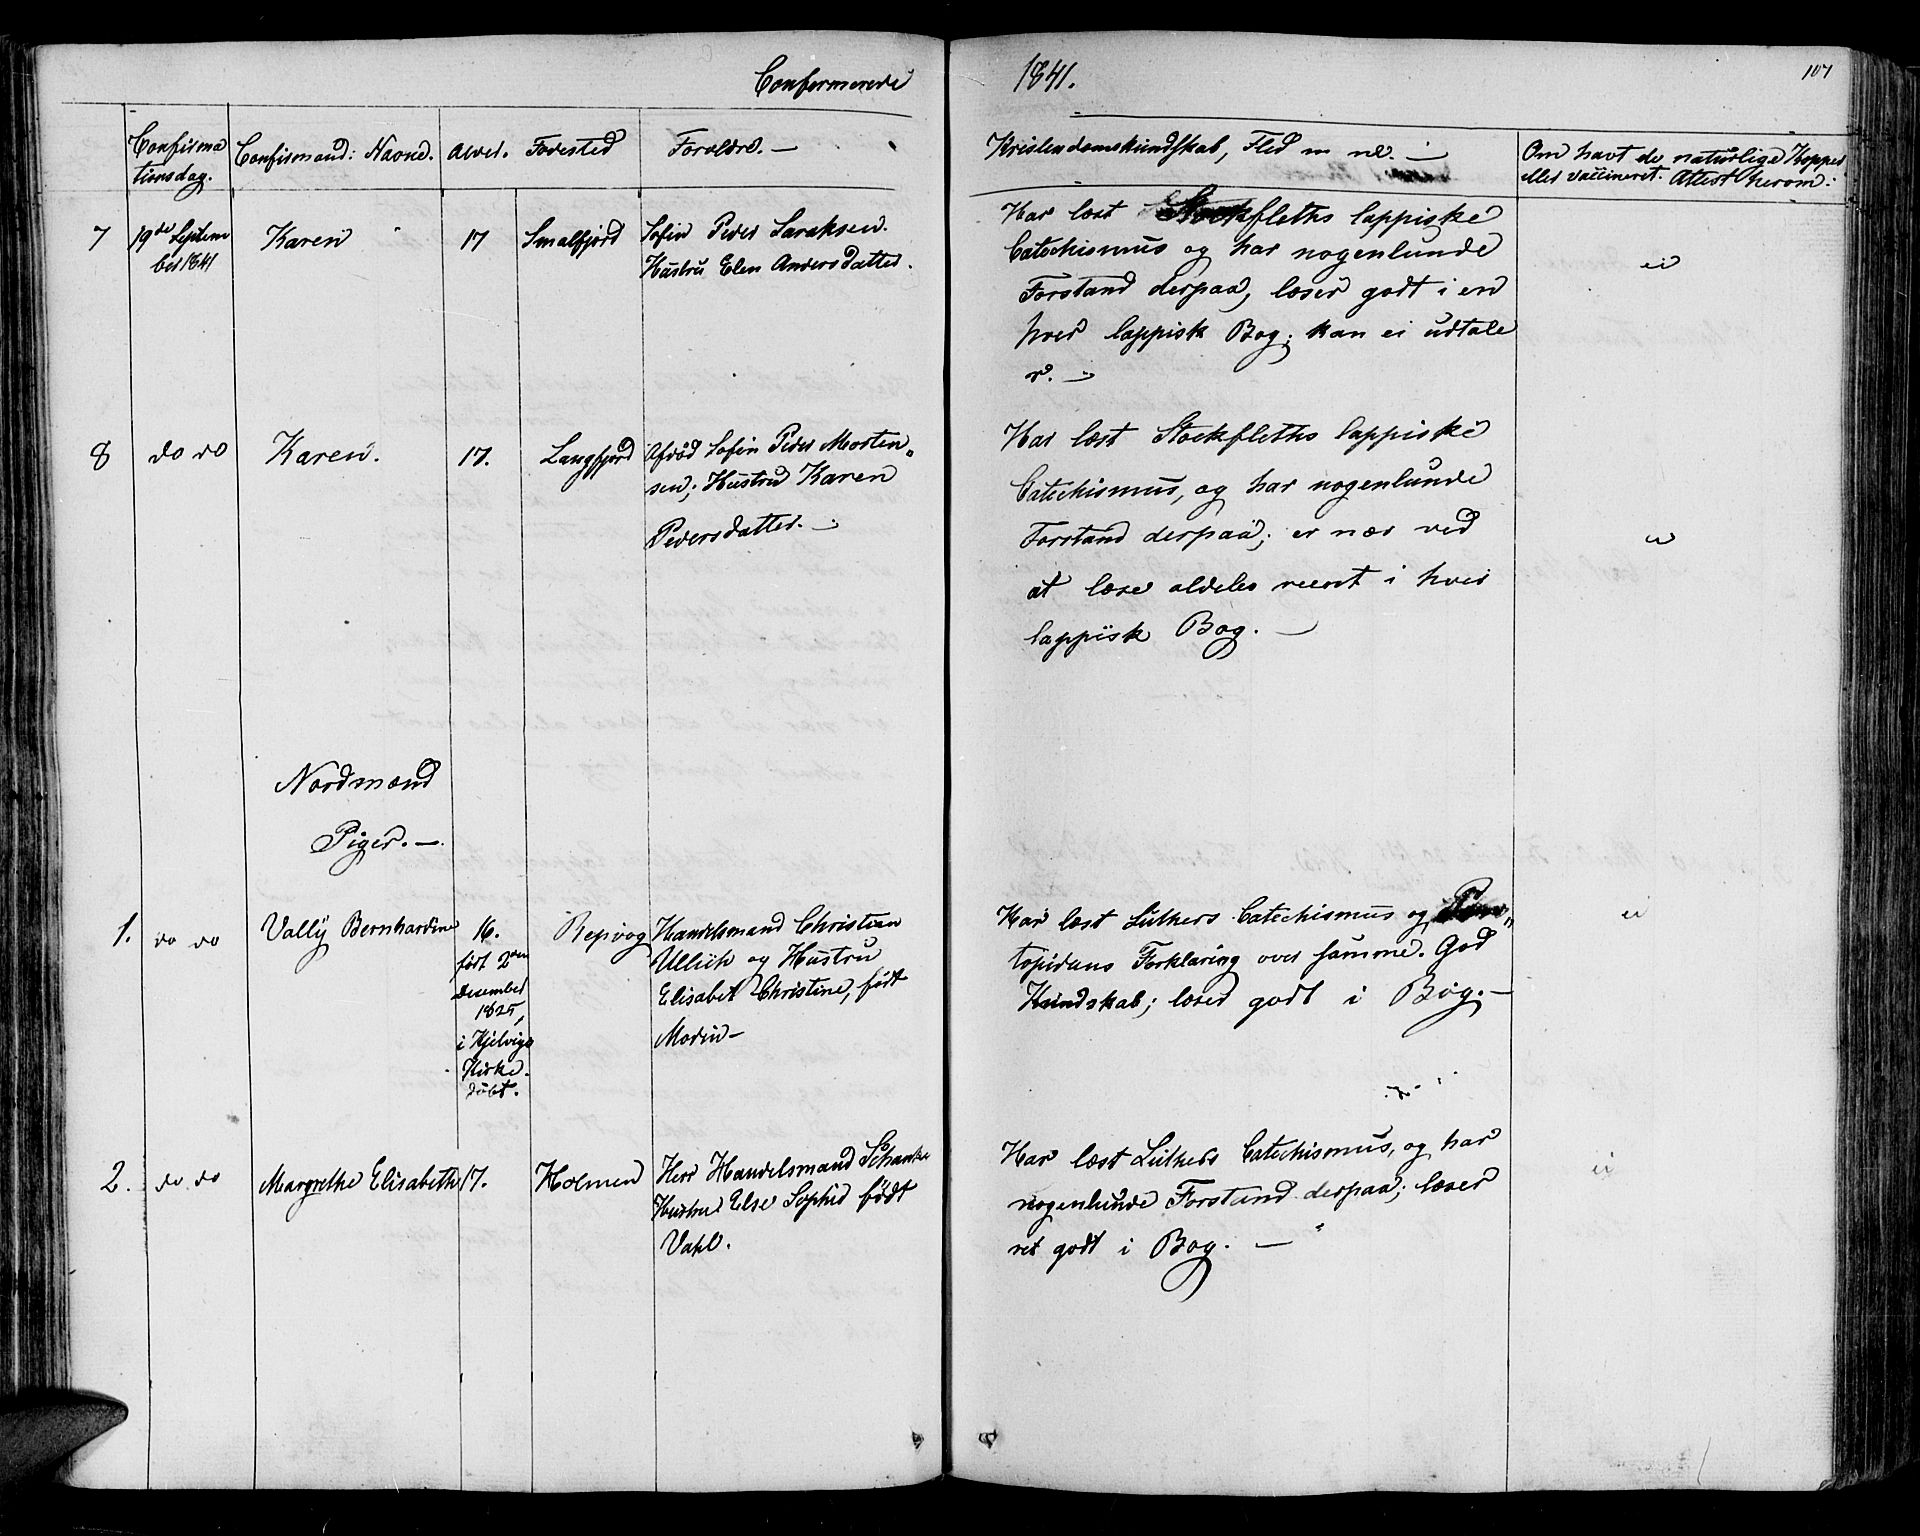 Confirmerede
1841.
107
Confirma
tionsdag.
Confirmand: Navne.
Alder.
Fødested
Forældre. —
Kristendomskundskab, Flid m. m. —
Om havt de naturlige Kopper
eller vaccineret. Attest herom:
7
19de Septem
ber 1841
Karen
17
Smalfjord
Sofin Peder Saraksen.
Hustru Elen Andersdatter.
Har læst Stockfleths lappiske
Catechismus og har nogenlunde
Forstand derpaa, læser godt i en
hver lappisk Bog; kan ei udtale
r. —
ei
8
do do
Karen.
17.
Langfjord
Afdød Sofin Peder Morten
sen; Hustru Karen
Pedersdatter. —
Har læst Stockfleths lappiske
Catechismus, og har nogenlunde
Forstand derpaa; er nær ved
at læse aldeles reent i hver
lappisk Bog. —
ei
Nordmænd
Piger. —
1.
do do
Vally Bernhardine
16.
født 2den
December
1825,
i Kjelvigs
Kirke
døbt.
Repvog
Handelsmand Christian
Ullich og Hustru
Elisabet Christine, født
Modin —
Har læst Luthers Catechismus og Pon
topidans Forklaring over samme. God
Kundskab; læser godt i Bog. —
ei
2.
do do
Margrethe Elisabeth
17.
Holmen
Herr Handelsmand Schanke
Hustru Else Sophie født
Vahl.
Har læst Luthers Catechismus, og har
nogenlunde Forstand derpaa; læser
ret godt i Bog. —
ei